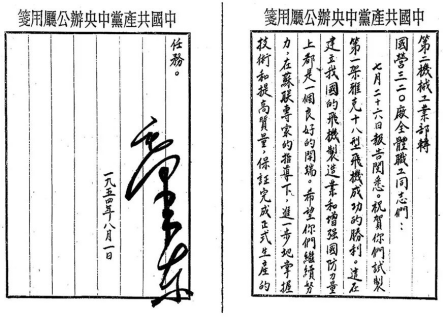 中國共產黨中央辦公廳用箋
第二機械工業部轉
國營三二〇廠全體職工同志們：
七月二十六日報告閱悉。祝賀你們試製
第一架雅克十八型飛機成功的勝利。這在
建立我國的飛機製造業和增强國防力量
上都是一個良好的開端。希望你們繼續努
力，在蘇聯專家的指導下，進一步地掌握
技術和提高質量，保証完成正式生產的
中國共產黨中央辦公廳用箋
任務。
毛澤東
一九五四年八月一日